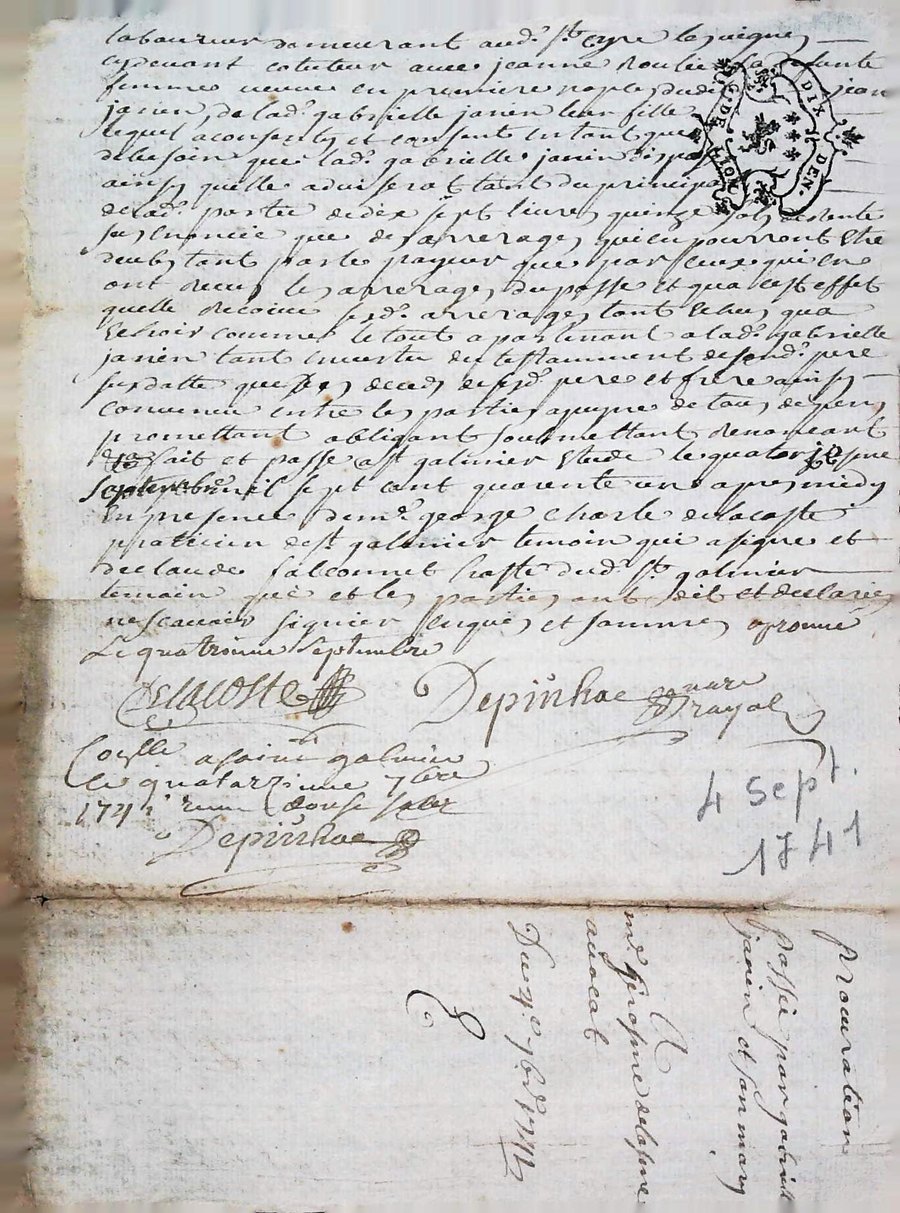 laboureur demeurant aud.t S.t Cyre les vignes
cydevant cotuteur avec jeanne
femme veuve en premiere nopces dud. jean
janien, de lad.e gabrielle janien leur fille
lequel a consenty et consent en tant que
de besoin que lad.e gabrielle janien dispose
ainsy quelle advisera tant du principal
de lad.e partie de dix sept livres quinze sols de rente
susenoncée que des arrerages qui en pourront etre
deubs tant par le payeur que par ceux qui en
ont receu les arrerages du passé et qua cest effet
quelle recoive lesd. arrerages tant echus qua
echoir comme le tout apartenant a lad.e gabrielle
janien tant en vertu du testamment de sond. pere
susdatte que des deceds desd. pere et frere ainsy
convenu entre les parties a peyne de tous depens
promettant obligant soubmettant renonceant
fait et passé a S.t galmier etude le
septembre mil sept cent quarente un apres midy
en presence de m.e george Charle delacoste
praticien de S.t galmier temoin qui a signé et
de claude falconnet dud. S.t galmier
temoin qui et les parties ont dit et declaré
ne scavoir signer enquis et sommés aprouvé
Le quatrieme septembre
Delacoste Depinhac
Con.llé a saint galmier
le quatorzieme 7bre
1741 receu douse sols
Depinhac
4 Sept.
1741
G. DE LYON
DIX DEN.
procuration
passée par gabrielle
janien et son mary
a
m.e jerosme delesme
avocat
Du 4.e 7bre 1741